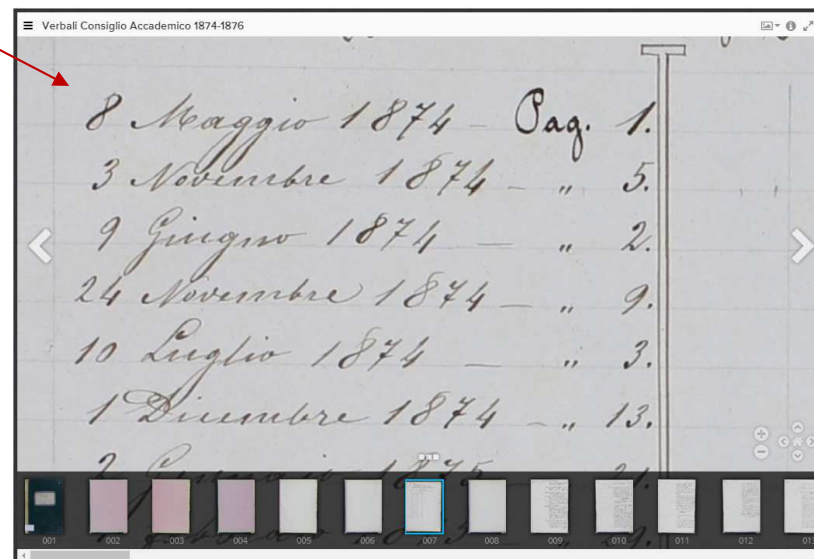 Verbali Consiglio Accademico 1874-1876
8 Maggio 1874 – Pag. 1.
3 Novembre 1874 – „ 5.
9 Giugno 1874 — „ 2.
24 Novembre 1874 – „ 9.
10 Luglio 1874 — „ 3.
1 Dicembre 1874 – „ 13.
2 Gennaio 1875 21.
001 002 003 004 005 006 007 008 009 010 011 012 013